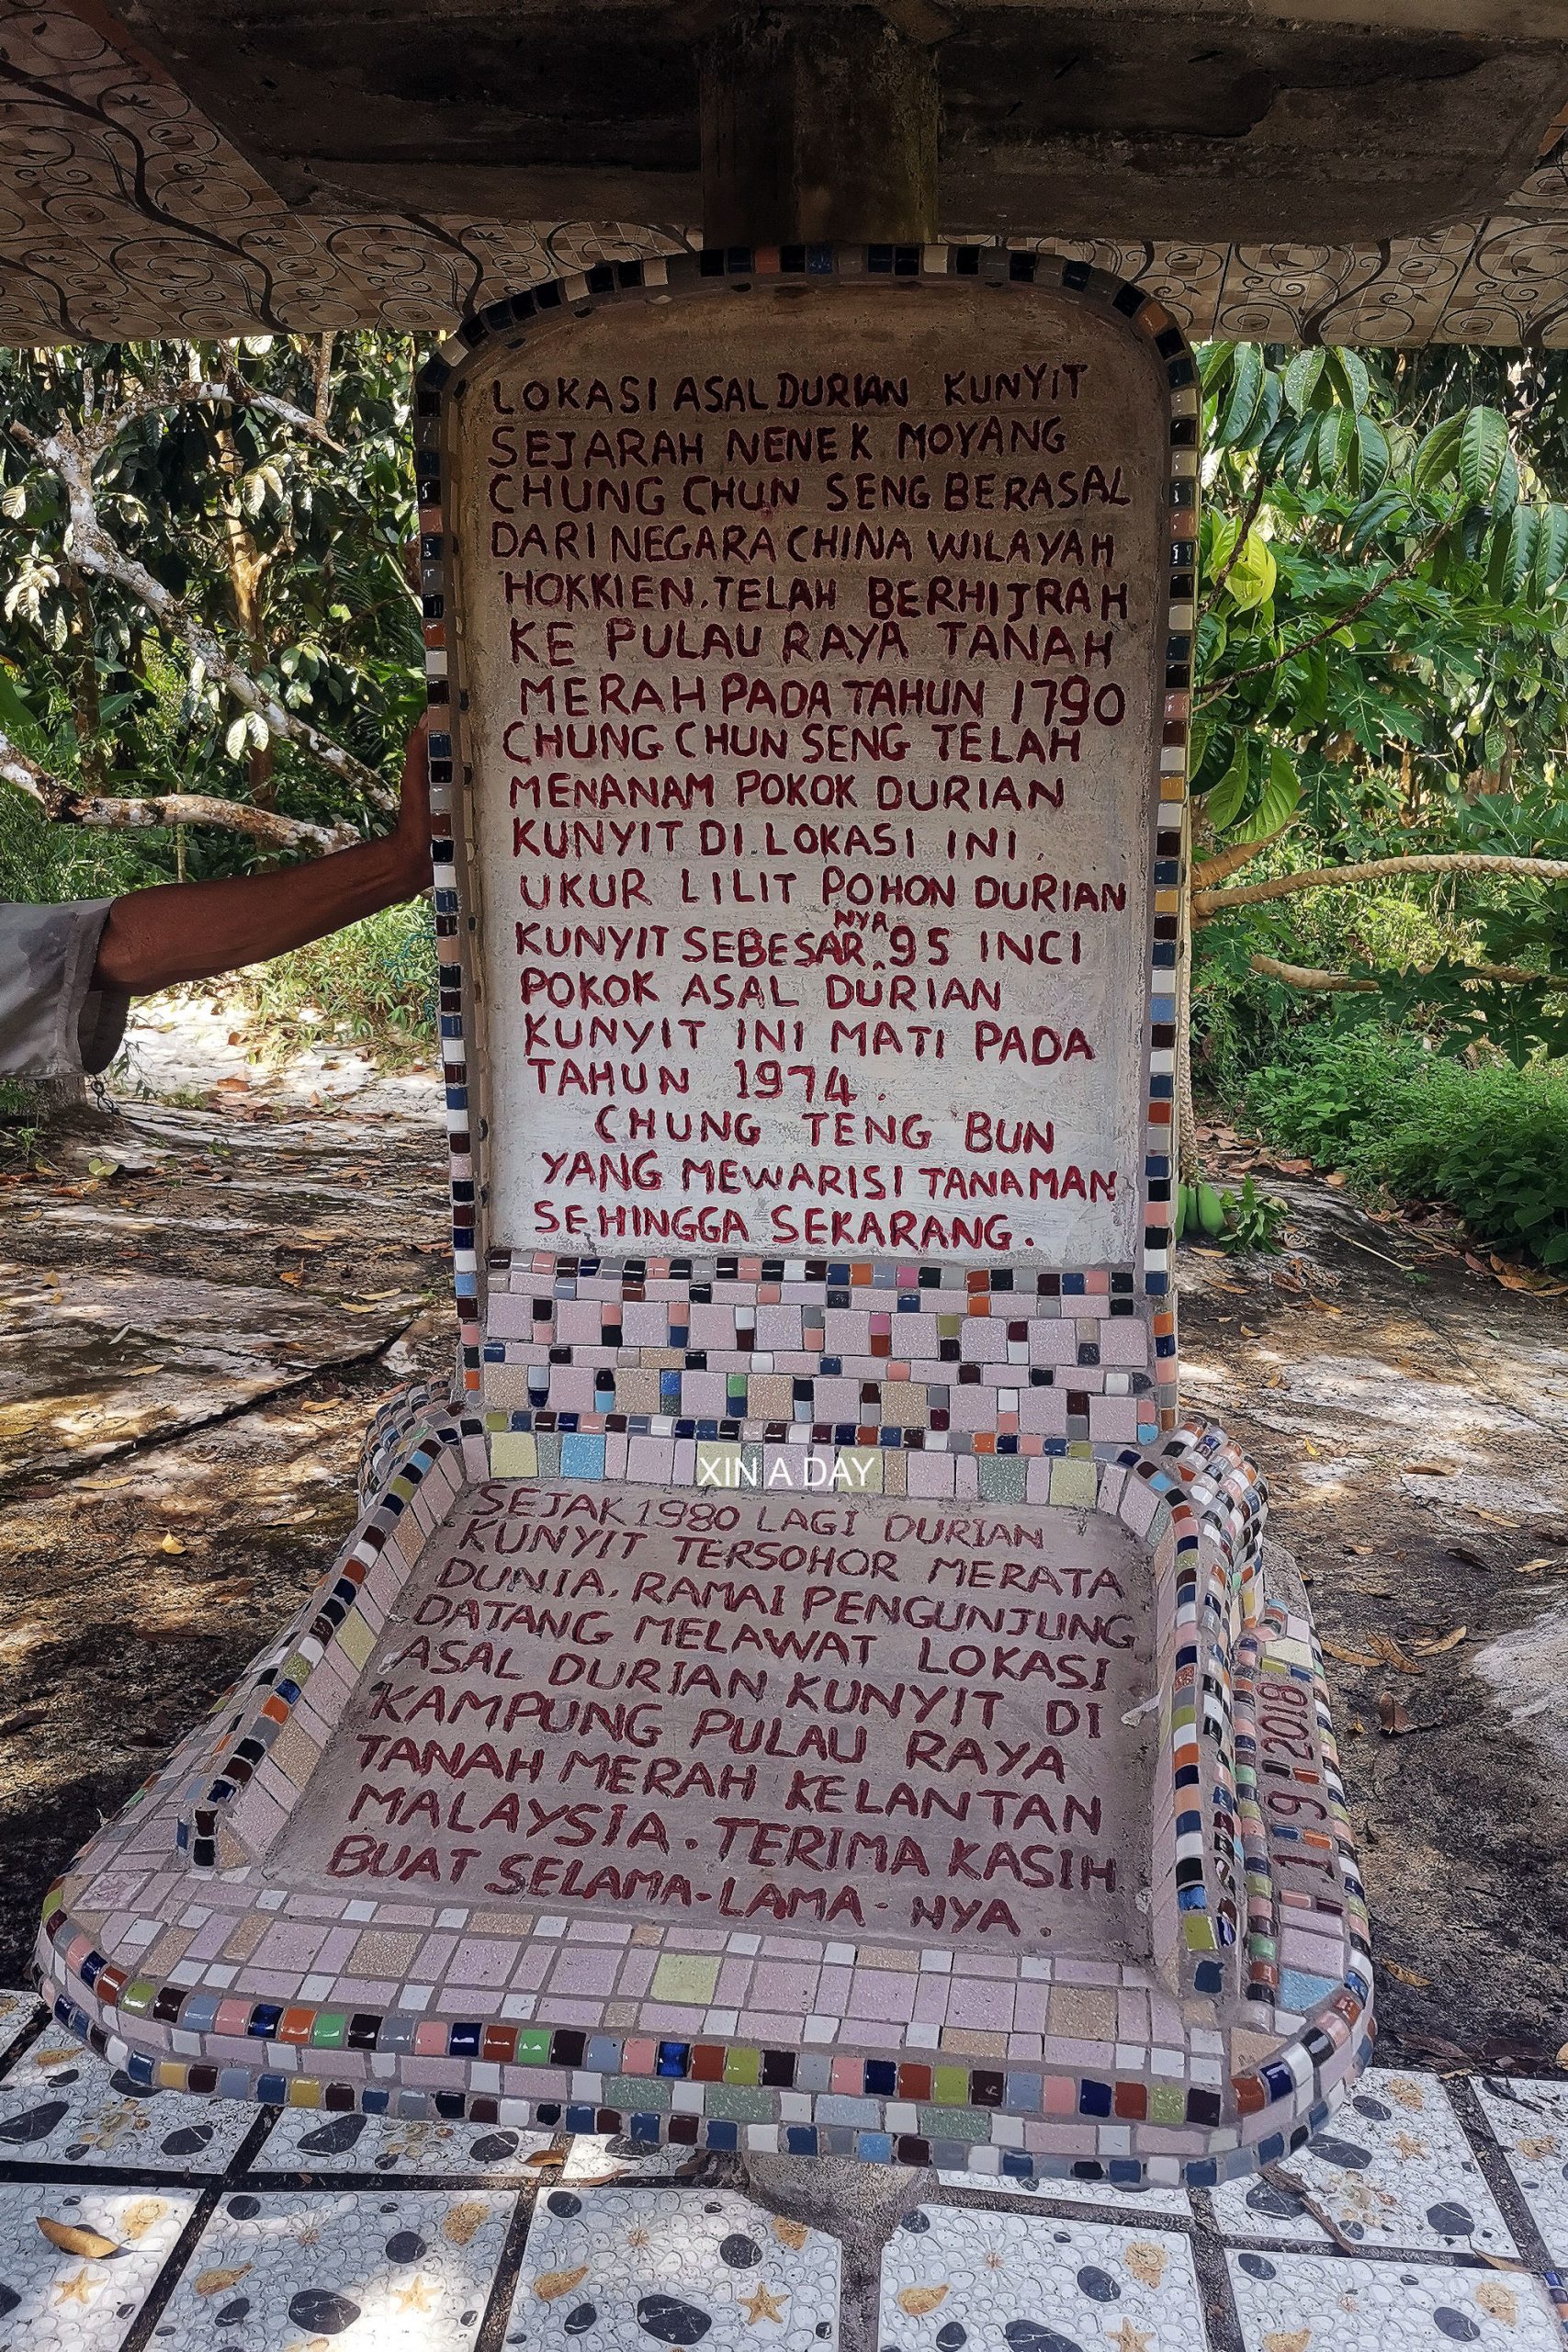 LOKASI ASAL DURIAN KUNYIT
SEJARAH NENEK MOYANG
CHUNG CHUN SENG BERASAL
DARI NEGARA CHINA WILAYAH
HOKKIEN. TELAH BERHIJRAH
KE PULAU RAYA TANAH
MERAH PADA TAHUN 1790
CHUNG CHUN SENG TELAH
MENANAM POKOK DURIAN
KUNYIT DI LOKASI INI.
UKUR LILIT POHON DURIAN
KUNYIT SEBESAR NYA 95 INCI
POKOK ASAL DURIAN
KUNYIT INI MATI PADA
TAHUN 1974.
CHUNG TENG BUN
YANG MEWARISI TANAMAN
SEHINGGA SEKARANG.
XIN A DAY
SEJAK 1980 LAGI DURIAN
KUNYIT TERSOHOR MERATA
DUNIA. RAMAI PENGUNJUNG
DATANG MELAWAT LOKASI
ASAL DURIAN KUNYIT DI
KAMPUNG PULAU RAYA
TANAH MERAH KELANTAN
MALAYSIA. TERIMA KASIH
BUAT SELAMA-LAMA-NYA.
1 9 2018